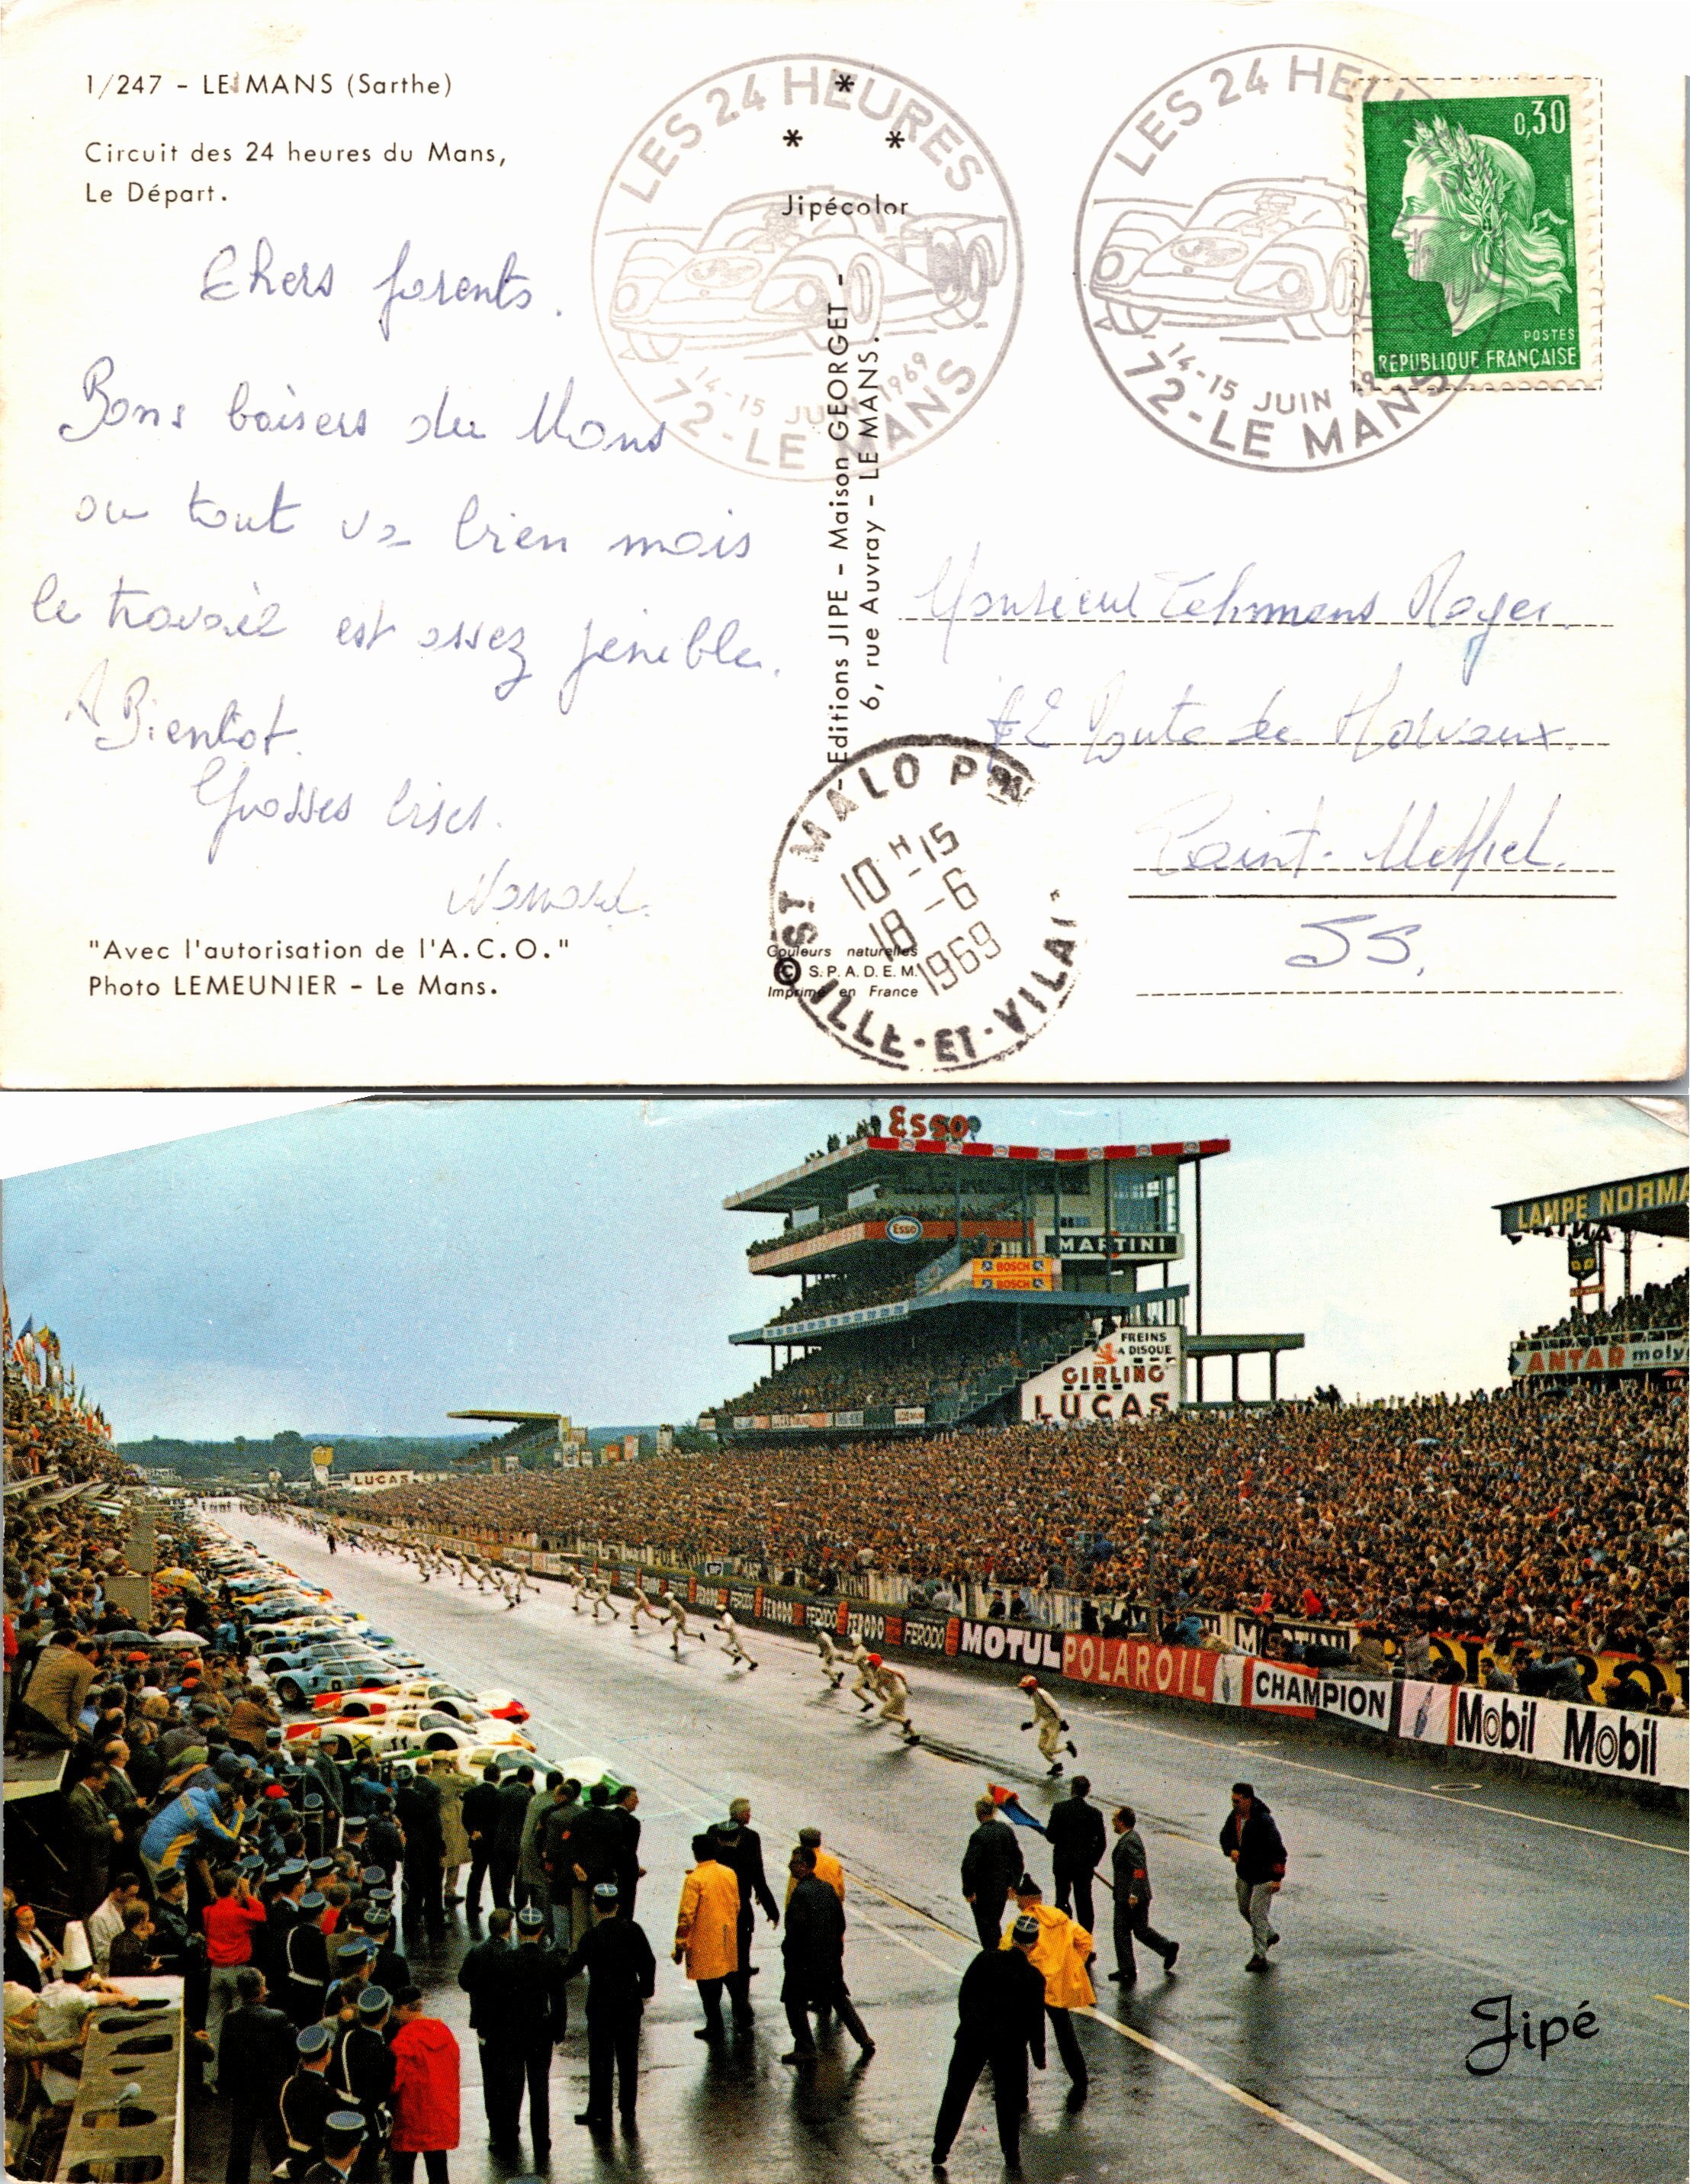 1/247 - LE MANS (Sarthe)
Circuit des 24 heures du Mans,
Le Départ.
Chers parents.
Bons baisers du Mans
ou tout va bien mais
le travail est assez penible.
A Bientot.
Grosses bises.
"Avec l'autorisation de l'A.C.O."
Photo LEMEUNIER - Le Mans.
LES 24 HEURES
14-15 JUIN 1969
72-LE MANS
Jipécolor
- Editions JIPE - Maison GEORGET -
6, rue Auvray - LE MANS.
LES 24 HEU
14-15 JUIN 19
72-LE MANS
0,30
POSTES
REPUBLIQUE FRANÇAISE
Monsieur Roger
Route de
Saint-
55.
ST MALO
10 H 15
18 -6
1969
ILLE-ET-VILAI
Couleurs naturelles
© S.P.A.D.E.M.
Imprimé en France
Esso
LAMPE NORMA
Esso
MARTINI
BOSCH
BOSCH
FREINS
A DISQUE
GIRLING
LUCAS
ANTAR moly
LUCAS
FERODO FERODO FERODO FERODO FERODO MOTUL POLAROIL CHAMPION Mobil Mobil
MARTINI
11
Jipé